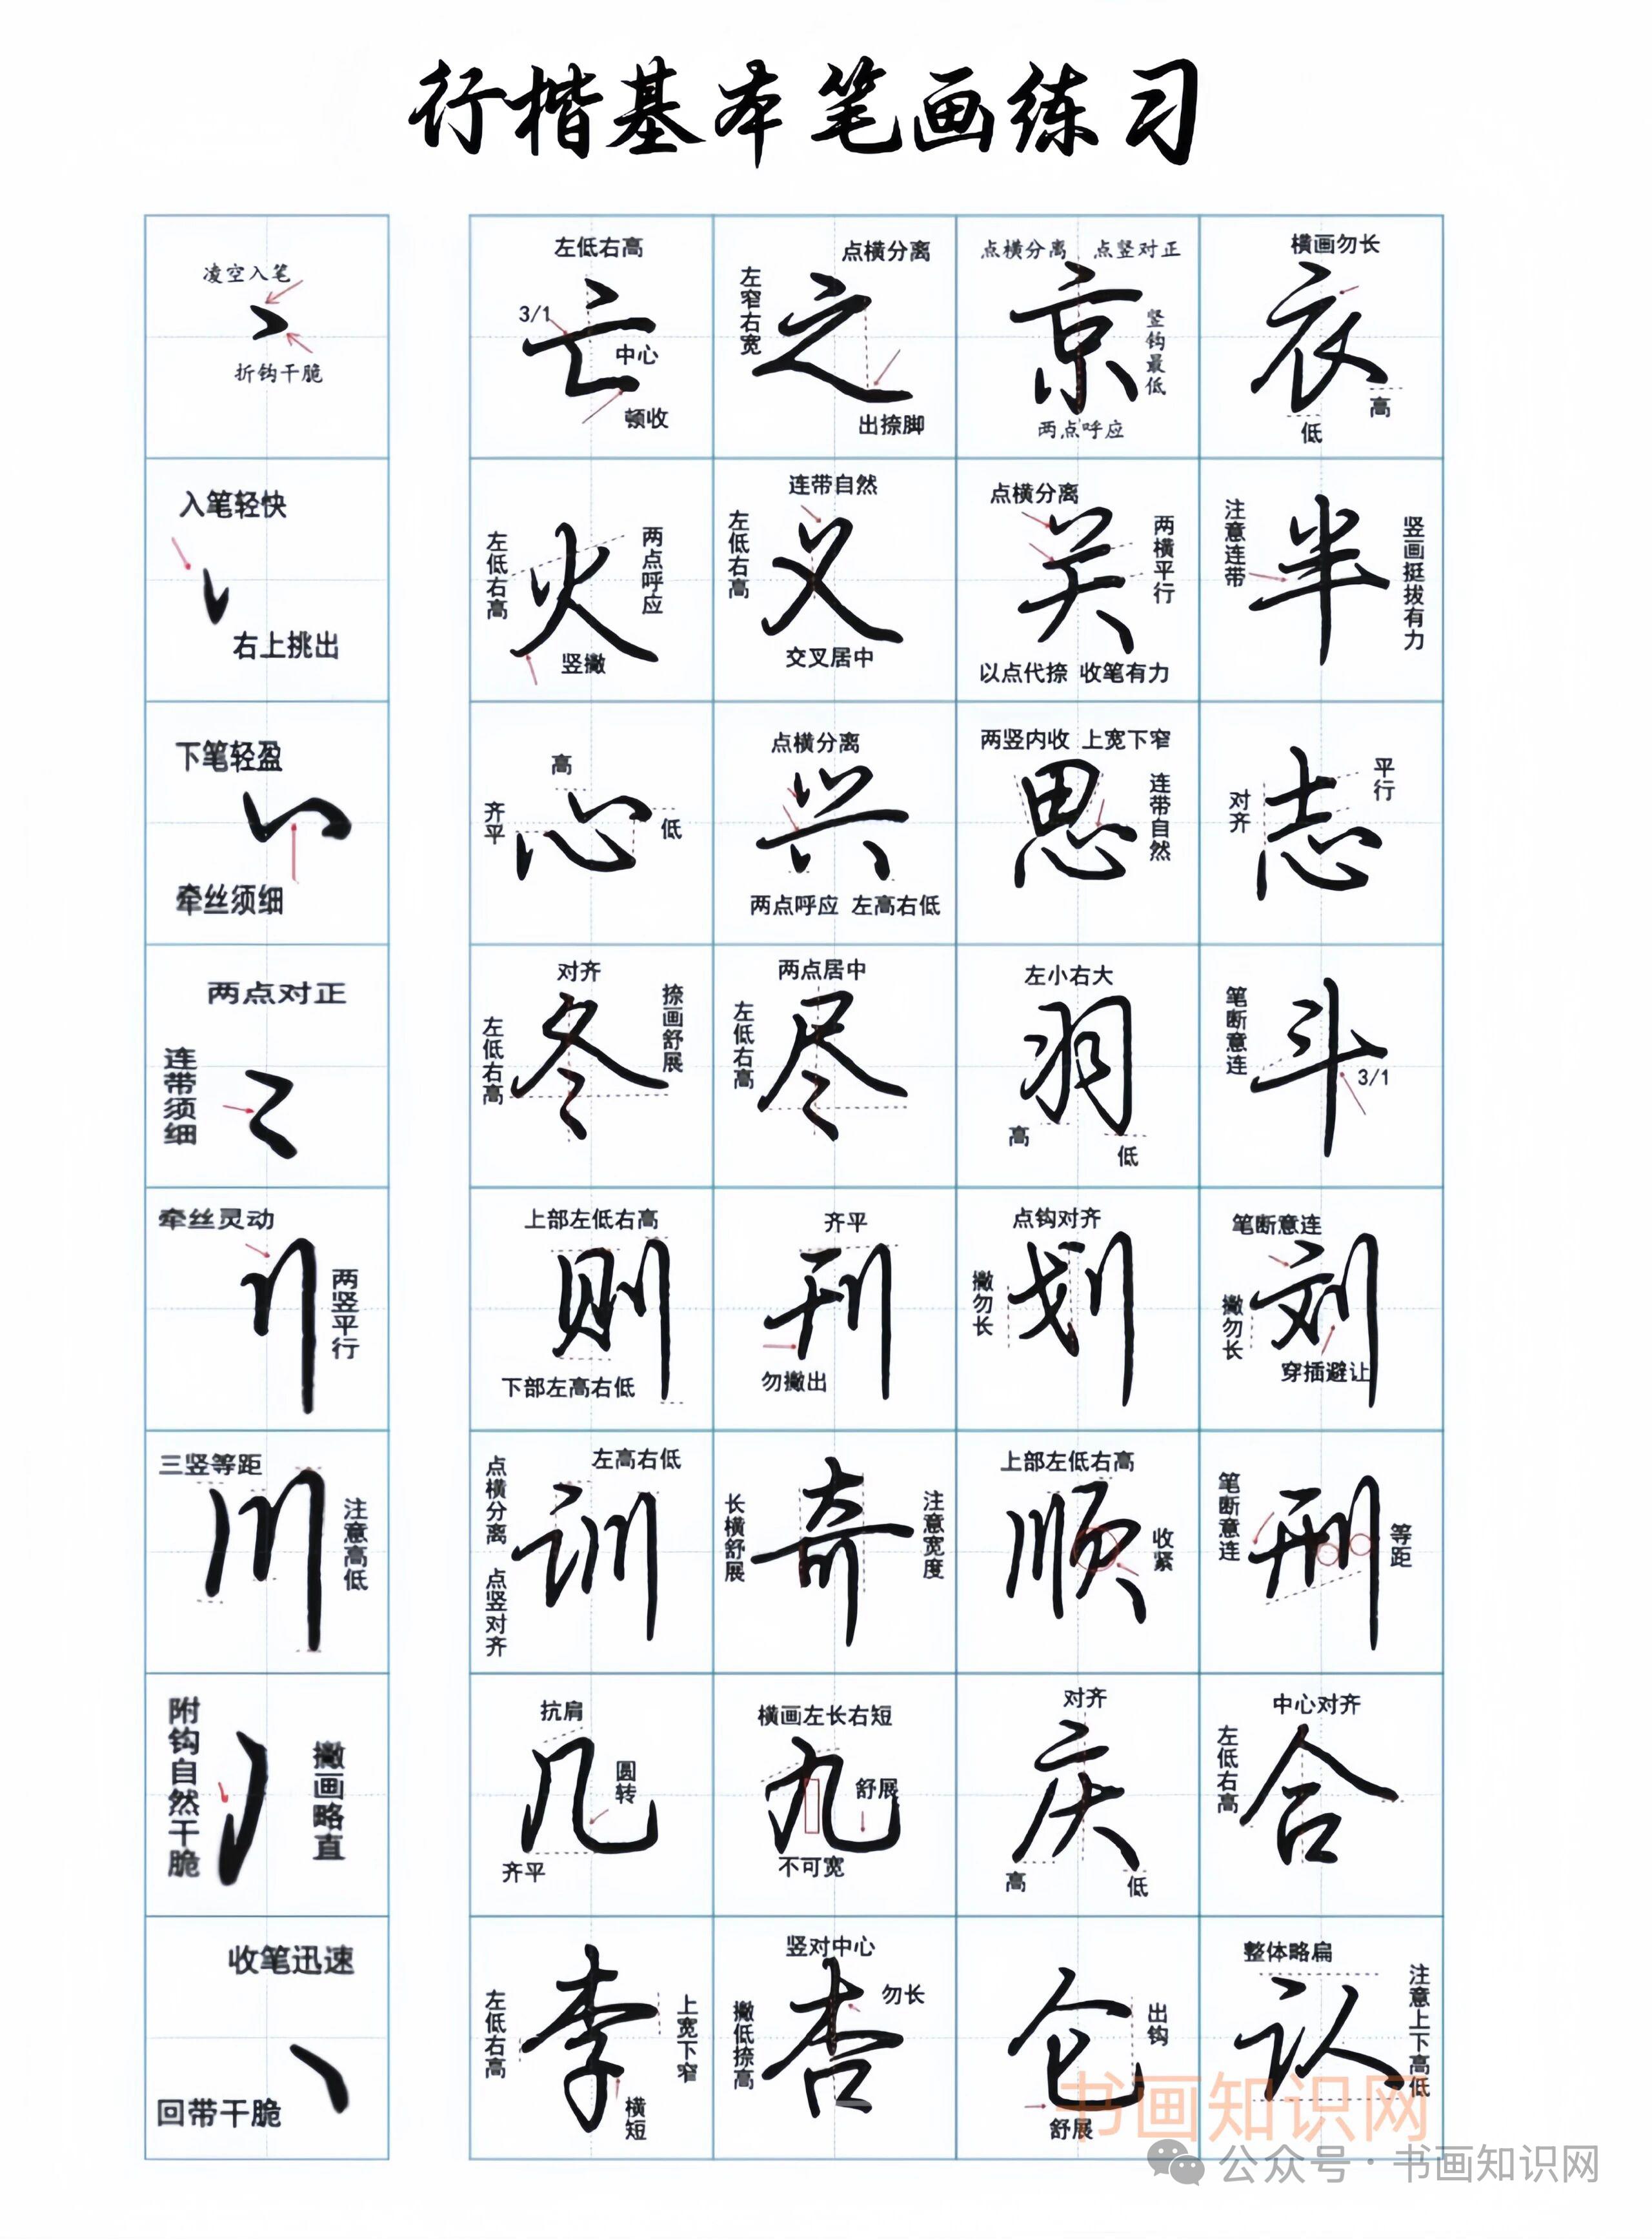 行楷基本笔画练习
凌空入笔
折钩干脆
左低右高
3/1
亡
中心
顿收
点横分离
左窄右宽
之
出捺脚
点横分离 点竖对正
京
竖钩最低
两点呼应
横画勿长
衣
高
低
入笔轻快
右上挑出
左低右高
火
两点呼应
竖撇
连带自然
左低右高
义
交叉居中
点横分离
关
两横平行
以点代捺 收笔有力
注意连带
半
竖画挺拔有力
下笔轻盈
牵丝须细
高
齐平
心
低
点横分离
兴
两点呼应 左高右低
两竖内收 上宽下窄
思
连带自然
平行
对齐
志
两点对正
连带须细
对齐
左低右高
冬
捺画舒展
两点居中
左低右高
尽
左小右大
羽
高
低
笔断意连
斗
3/1
牵丝灵动
两竖平行
上部左低右高
则
下部左高右低
齐平
刊
勿撇出
点钩对齐
撇勿长
划
笔断意连
撇勿长
刘
穿插避让
三竖等距
川
注意高低
点横分离 点竖对齐
左高右低
训
长横舒展
奇
注意宽度
上部左低右高
顺
收紧
笔断意连
刑
等距
附钩自然干脆
撇画略直
抗肩
几
圆转
齐平
横画左长右短
九
舒展
不可宽
对齐
庆
高
低
中心对齐
左低右高
合
收笔迅速
回带干脆
左低右高
李
上宽下窄
横短
竖对中心
撇低捺高
杏
勿长
仑
出钩
舒展
整体略扁
认
注意上下高低
书画知识网
公众号·书画知识网